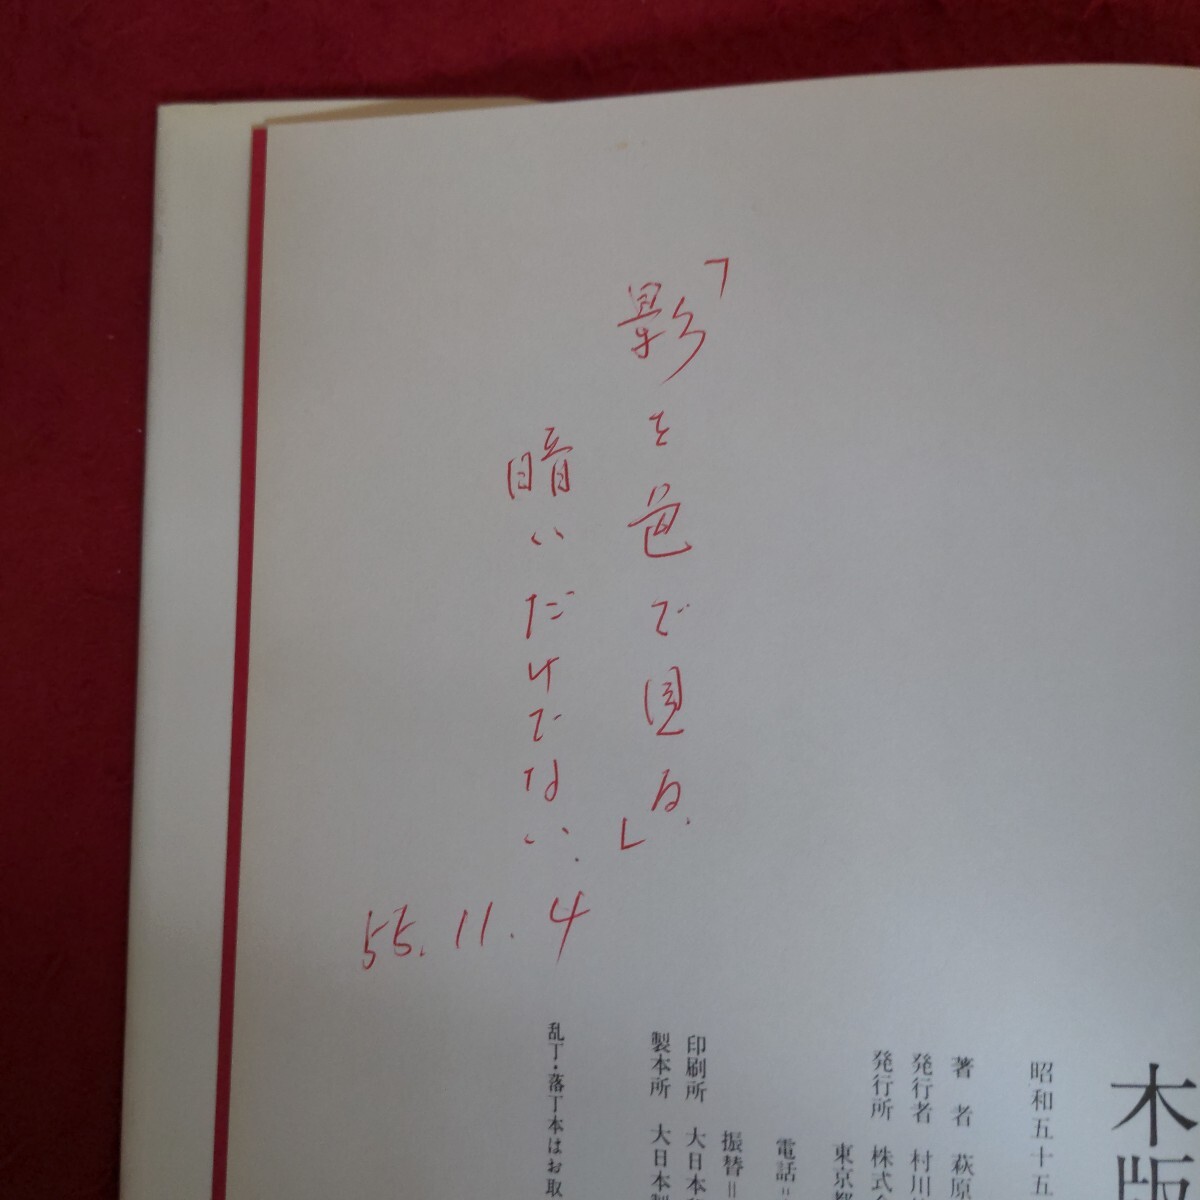 「影を色で見る、」
暗いだけでない.
55.11.4
木版
昭和五十五
著者 萩原
発行者 村川
発行所 株式
東京都
電話=
振替=
印刷所 大日本
製本所 大日本製
乱丁・落丁本はお取